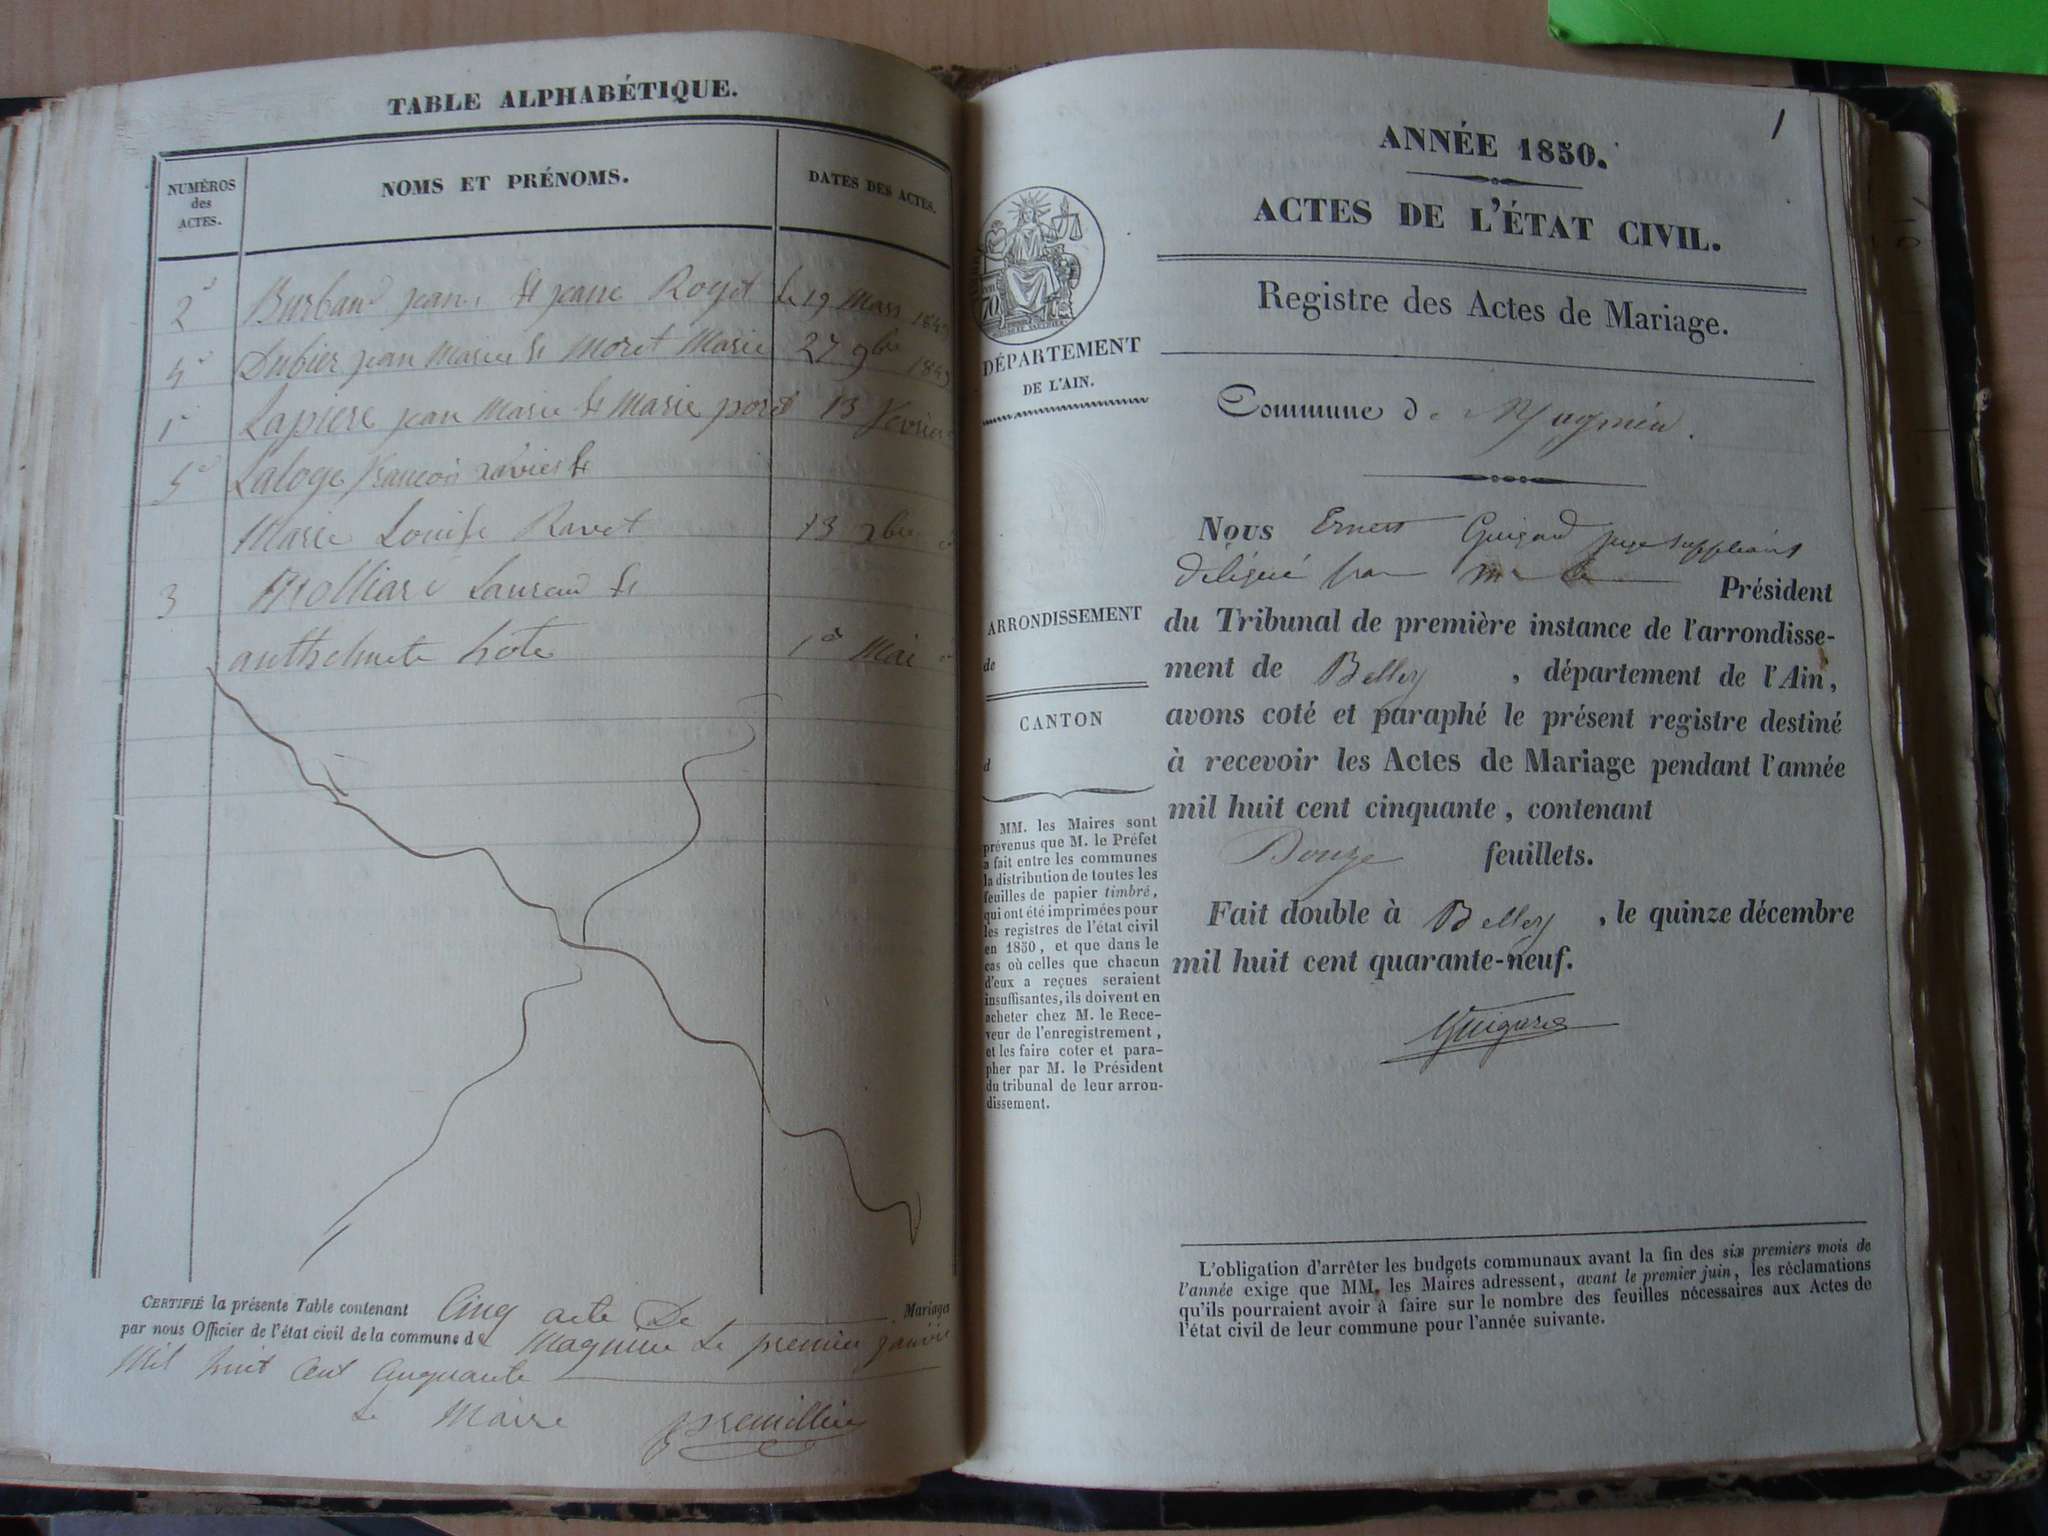 TABLE ALPHABÉTIQUE.
NUMÉROS des ACTES.
NOMS ET PRÉNOMS.
DATES DES ACTES.
2 Burband jean, et jeane Royet le 19 Mars 1849
4 Dubier jean Marie et Moret Marie 27 9bre 1849
1 Lapiere jean Marie et Marie poret 13 fevrier
5 Laloge francois xavier et
Marie Louise Ravet 13 xbre
3 Molliard Laurend et
1er Mai
CERTIFIÉ la présente Table contenant Cinq acte De Mariages
par nous Officier de l'état civil de la commune de Magnieu Le premier janvier
Mil huit Cent Cinquante
Le Maire
1
ANNÉE 1850.
ACTES DE L'ÉTAT CIVIL.
Registre des Actes de Mariage.
DÉPARTEMENT
DE L'AIN.
Commune de Magnieu.
Nous Ernest Guigard juge suppléant
délégué par Mr le Président
ARRONDISSEMENT
de
du Tribunal de première instance de l'arrondisse-
ment de Belley, département de l'Ain,
CANTON
d
avons coté et paraphé le présent registre destiné
à recevoir les Actes de Mariage pendant l'année
mil huit cent cinquante, contenant
Douze feuillets.
Fait double à Belley, le quinze décembre
mil huit cent quarante-neuf.
Guigard
MM. les Maires sont
prévenus que M. le Préfet
a fait entre les communes
la distribution de toutes les
feuilles de papier timbré,
qui ont été imprimées pour
les registres de l'état civil
en 1850, et que dans le
cas où celles que chacun
d'eux a reçues seraient
insuffisantes, ils doivent en
acheter chez M. le Rece-
veur de l'enregistrement,
et les faire coter et para-
pher par M. le Président
du tribunal de leur arron-
dissement.
L'obligation d'arrêter les budgets communaux avant la fin des six premiers mois de
l'année exige que MM. les Maires adressent, avant le premier juin, les réclamations
qu'ils pourraient avoir à faire sur le nombre des feuilles nécessaires aux Actes de
l'état civil de leur commune pour l'année suivante.